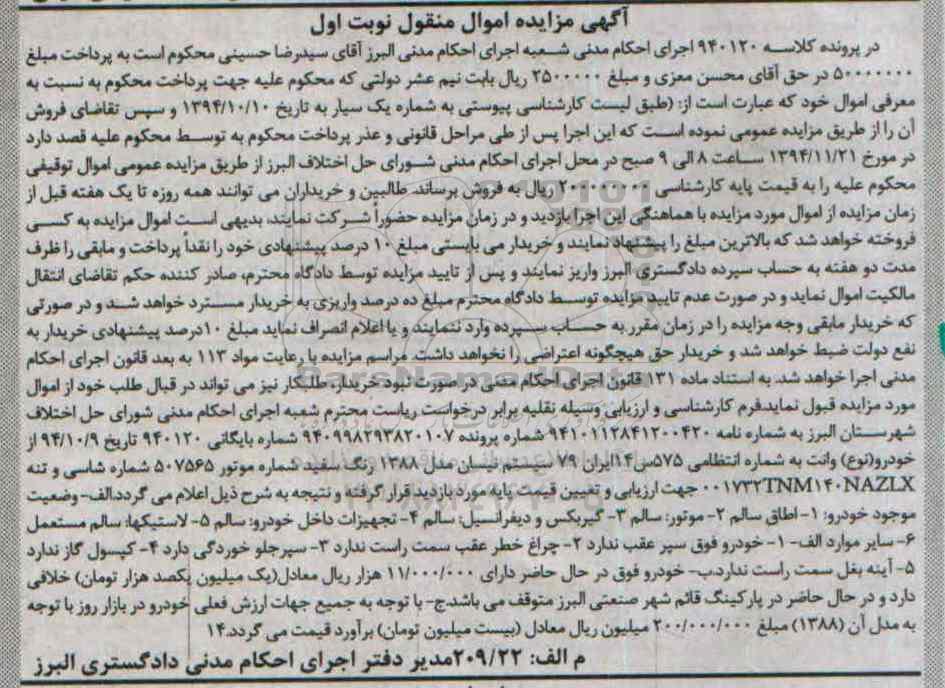 آگهی مزایده اموال منقول نوبت اول
در پرونده کلاسه ۹۴۰۱۲۰ اجرای احکام مدنی شعبه اجرای احکام مدنی البرز آقای سیدرضا حسینی محکوم است به پرداخت مبلغ
۵۰۰۰۰۰۰۰ در حق آقای محسن معزی و مبلغ ۲۵۰۰۰۰۰ ریال بابت نیم عشر دولتی که محکوم علیه جهت پرداخت محکوم به نسبت به
معرفی اموال خود که عبارت است از: (طبق لیست کارشناسی پیوستی به شماره یک سیار به تاریخ ۱۳۹۴/۱۰/۱۰ و سپس تقاضای فروش
آن را از طریق مزایده عمومی نموده است که این اجرا پس از طی مراحل قانونی و عذر پرداخت محکوم به توسط محکوم علیه قصد دارد
در مورخ ۱۳۹۴/۱۱/۲۱ ساعت ۸ الی ۹ صبح در محل اجرای احکام مدنی شورای حل اختلاف البرز از طریق مزایده عمومی اموال توقیفی
محکوم علیه را به قیمت پایه کارشناسی ۲۰۰۰۰۰۰۰۰ ریال به فروش برساند. طالبین و خریداران می توانند همه روزه تا یک هفته قبل از
زمان مزایده از اموال مورد مزایده با هماهنگی این اجرا بازدید و در زمان مزایده حضوراً شرکت نمایند، بدیهی است اموال مزایده به کسی
فروخته خواهد شد که بالاترین مبلغ را پیشنهاد نمایند و خریدار می بایستی مبلغ ۱۰ درصد پیشنهادی خود را نقداً پرداخت و مابقی را ظرف
مدت دو هفته به حساب سپرده دادگستری البرز واریز نمایند و پس از تایید مزایده توسط دادگاه محترم، صادر کننده حکم تقاضای انتقال
مالکیت اموال نماید و در صورت عدم تایید مزایده توسط دادگاه محترم مبلغ ده درصد واریزی به خریدار مسترد خواهد شد و در صورتی
که خریدار مابقی وجه مزایده را در زمان مقرر به حساب سپرده وارد ننمایند و یا اعلام انصراف نماید مبلغ ۱۰درصد پیشنهادی خریدار به
نفع دولت ضبط خواهد شد و خریدار حق هیچگونه اعتراضی را نخواهد داشت. مراسم مزایده با رعایت مواد ۱۱۳ به بعد قانون اجرای احکام
مدنی اجرا خواهد شد. به استناد ماده ۱۳۱ قانون اجرای احکام مدنی در صورت نبود خریدار، طلبکار نیز می تواند در قبال طلب خود از اموال
مورد مزایده قبول نماید.فرم کارشناسی و ارزیابی وسیله نقلیه برابر درخواست ریاست محترم شعبه اجرای احکام مدنی شورای حل اختلاف
شهرستان البرز به شماره نامه ۹۴۱۰۱۱۲۸۴۱۲۰۰۴۲۰ شماره پرونده ۹۴۰۹۹۸۲۹۳۸۲۰۱۰۷ شماره بایگانی ۹۴۰۱۲۰ تاریخ ۹۴/۱۰/۹ از
خودرو(نوع) وانت به شماره انتظامی ۵۷۵س۱۴ایران ۷۹ سیستم نیسان مدل ۱۳۸۸ رنگ سفید شماره موتور ۵۰۷۵۶۵ شماره شاسی و تنه
۰۰۱۷۳۲TNM۱۴۰NAZLX جهت ارزیابی و تعیین قیمت پایه مورد بازدید قرار گرفته و نتیجه به شرح ذیل اعلام می گردد.الف- وضعیت
موجود خودرو: ۱- اطاق سالم ۲- موتور: سالم ۳- گیربکس و دیفرانسیل: سالم ۴- تجهیزات داخل خودرو: سالم ۵- لاستیکها: سالم مستعمل
۶- سایر موارد الف- ۱- خودرو فوق سپر عقب ندارد ۲- چراغ خطر عقب سمت راست ندارد ۳- سپرجلو خوردگی دارد ۴- کپسول گاز ندارد
۵- آینه بغل سمت راست ندارد.ب- خودرو فوق در حال حاضر دارای ۱۱/۰۰۰/۰۰۰ هزار ریال معادل(یک میلیون یکصد هزار تومان) خلافی
دارد و در حال حاضر در پارکینگ قائم شهر صنعتی البرز متوقف می باشد.ج- با توجه به جمیع جهات ارزش فعلی خودرو در بازار روز با توجه
به مدل آن (۱۳۸۸) مبلغ ۲۰۰/۰۰۰/۰۰۰ میلیون ریال معادل (بیست میلیون تومان) برآورد قیمت می گردد.۱۴
م الف: ۲۰۹/۲۲مدیر دفتر اجرای احکام مدنی دادگستری البرز
ParsNamadData